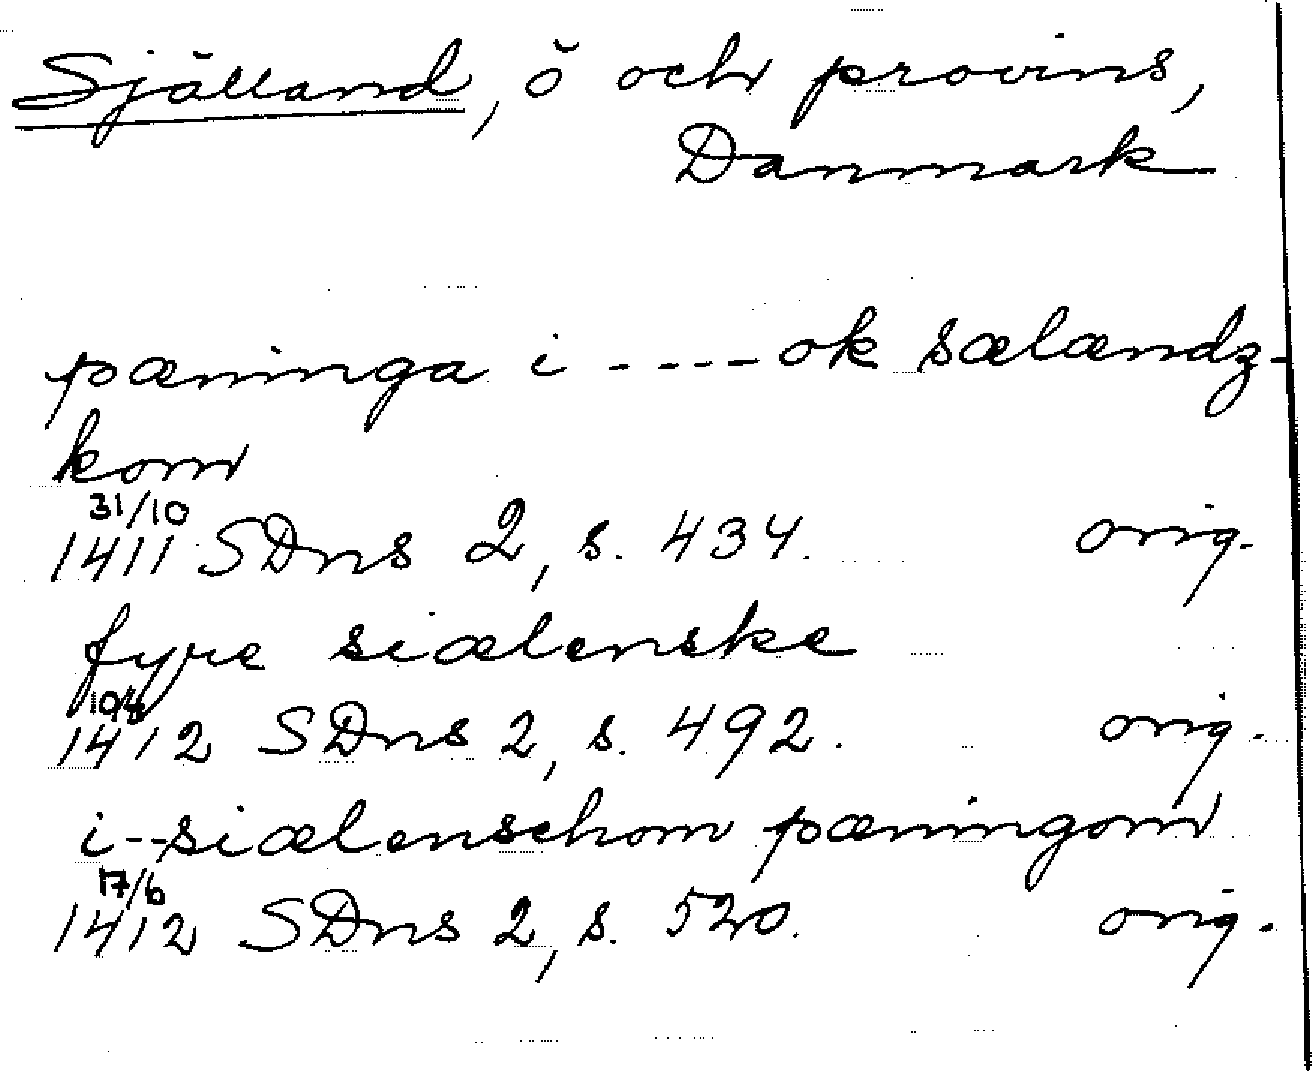 Själland, ö och provins,
Danmark
pæninga i ---- ok sælændz-
kom
31/10
1411 SDns 2, s. 434. orig.
fyre siælenske
1412 SDns 2, s. 492. orig.
i--siælenschom pæningom
17/6
1412 SDns 2, s. 520. orig.